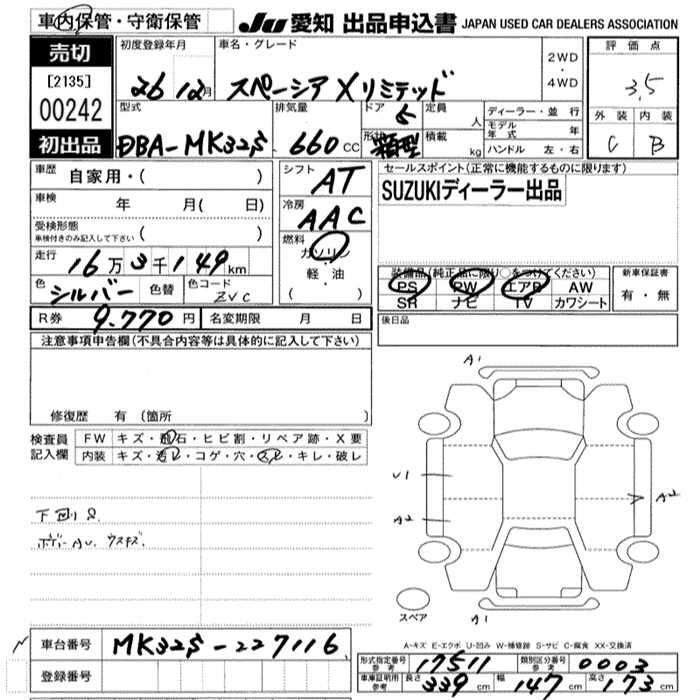 車内保管・守衛保管
JU 愛知 出品申込書 JAPAN USED CAR DEALERS ASSOCIATION
売切
[2135]
00242
初出品
初度登録年月
26 12月
車名・グレード
スペーシア Xリミテッド
2WD
・
4WD
評価点
3.5
外装 内装
C B
型式
DBA-MK32S
排気量
660 cc
ドア 5
形状 箱型
定員 人
積載 kg
ディーラー・並行
モデル年式 年
ハンドル 左・右
車歴 自家用・( )
車検 年 月( 日)
受検形態
車検付きのみ記入して下さい ( )
走行 16万3千149km
色 シルバー 色替 色コード ZVC
シフト AT
冷房 AAC
燃料
ガソリン
・
軽・油
( )
セールスポイント(正常に機能するものに限ります)
SUZUKIディーラー出品
装備品(純正品に限り○をつけてください)
PS PW エアB AW
SR ナビ TV カワシート
新車保証書
有・無
R券 9,770円 名変期限 月 日
後日品
注意事項申告欄(不具合内容等は具体的に記入して下さい)
修復歴 有(箇所 )
検査員
記入欄
FW キズ・飛石・ヒビ割・リペア跡・X要
内装 キズ・汚レ・コゲ・穴・スレ・キレ・破レ
下回りS
ボディーAU.ウスキズ.
A1
U1
A2
A2
スペア
A1
A-キズ E-エクボ U-凹み W-補修跡 S-サビ C-腐食 XX-交換済
車台番号 MK32S-227116
登録番号
形式指定番号
参考 17511
類別区分番号
参考 0003
車庫証明用
参考 長さ 339cm 幅 147cm 高さ 173cm